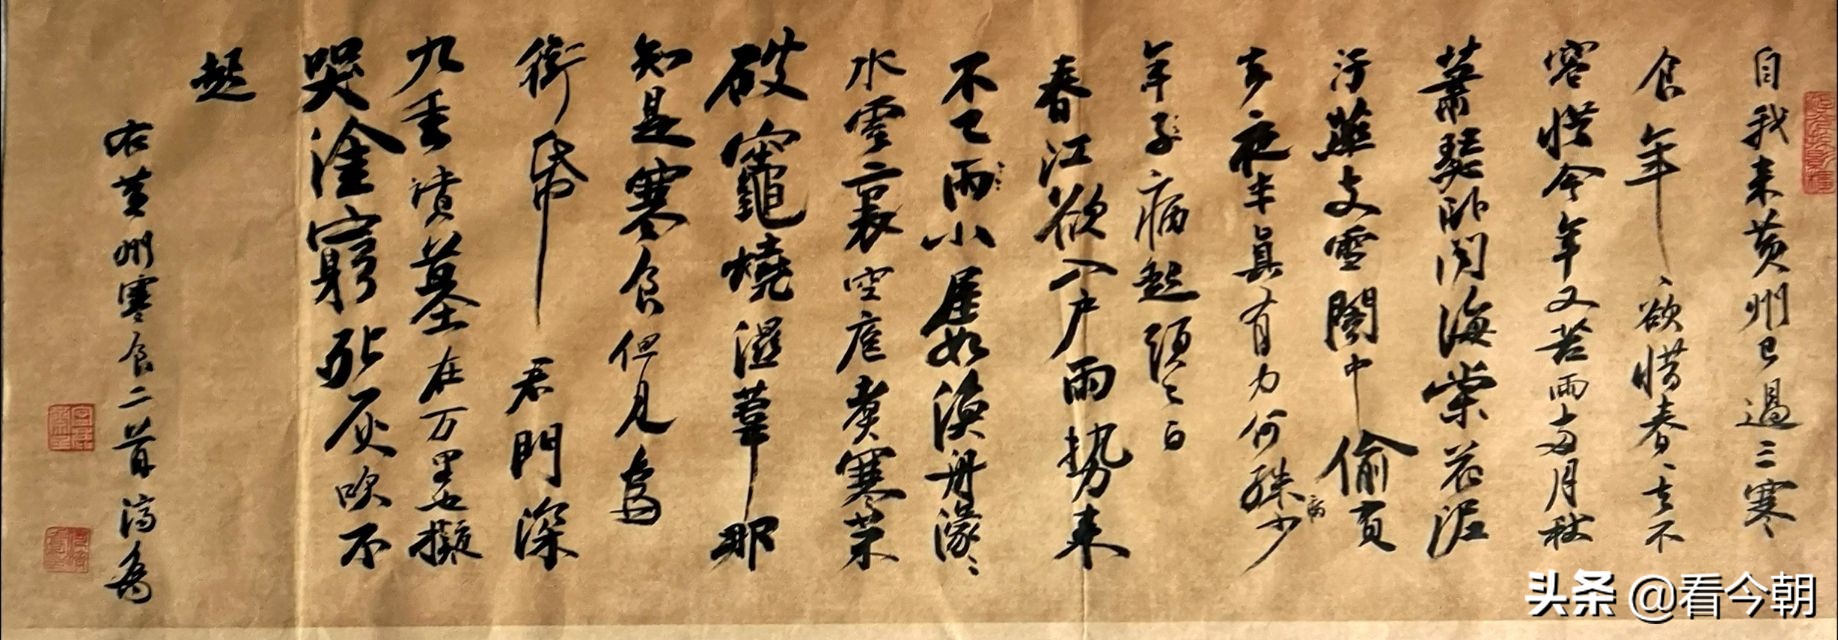 自我来黄州已過三寒
食年年欲惜春春去不
容惜今年又苦雨兩月秋
蕭瑟卧聞海棠花泥
污燕支雪闇中偷負
去夜半真有力何殊少
年子病起頭已白
春江欲入户雨势来
不已雨小屋如漁舟濛濛
水雲裏空庖煮寒菜
破竈燒濕葦那
知是寒食但見烏
銜帋君門深
九重墳墓在万里也擬
哭塗窮死灰吹不
起
右黄州寒食二首
头条 @看今朝